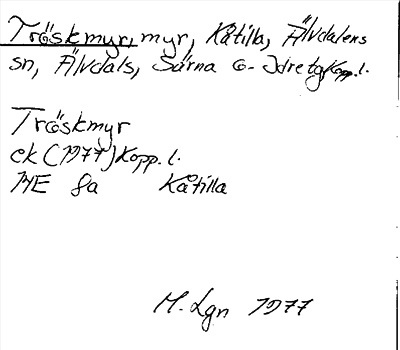 Tröskmyr, myr, Kåtilla, Älvdalens
sn, Älvdals, Särna o. Idre tg Kopp. l.
Tröskmyr
ek (1977) Kopp. l.
14E 8a Kåtilla
M. Lgn 1977